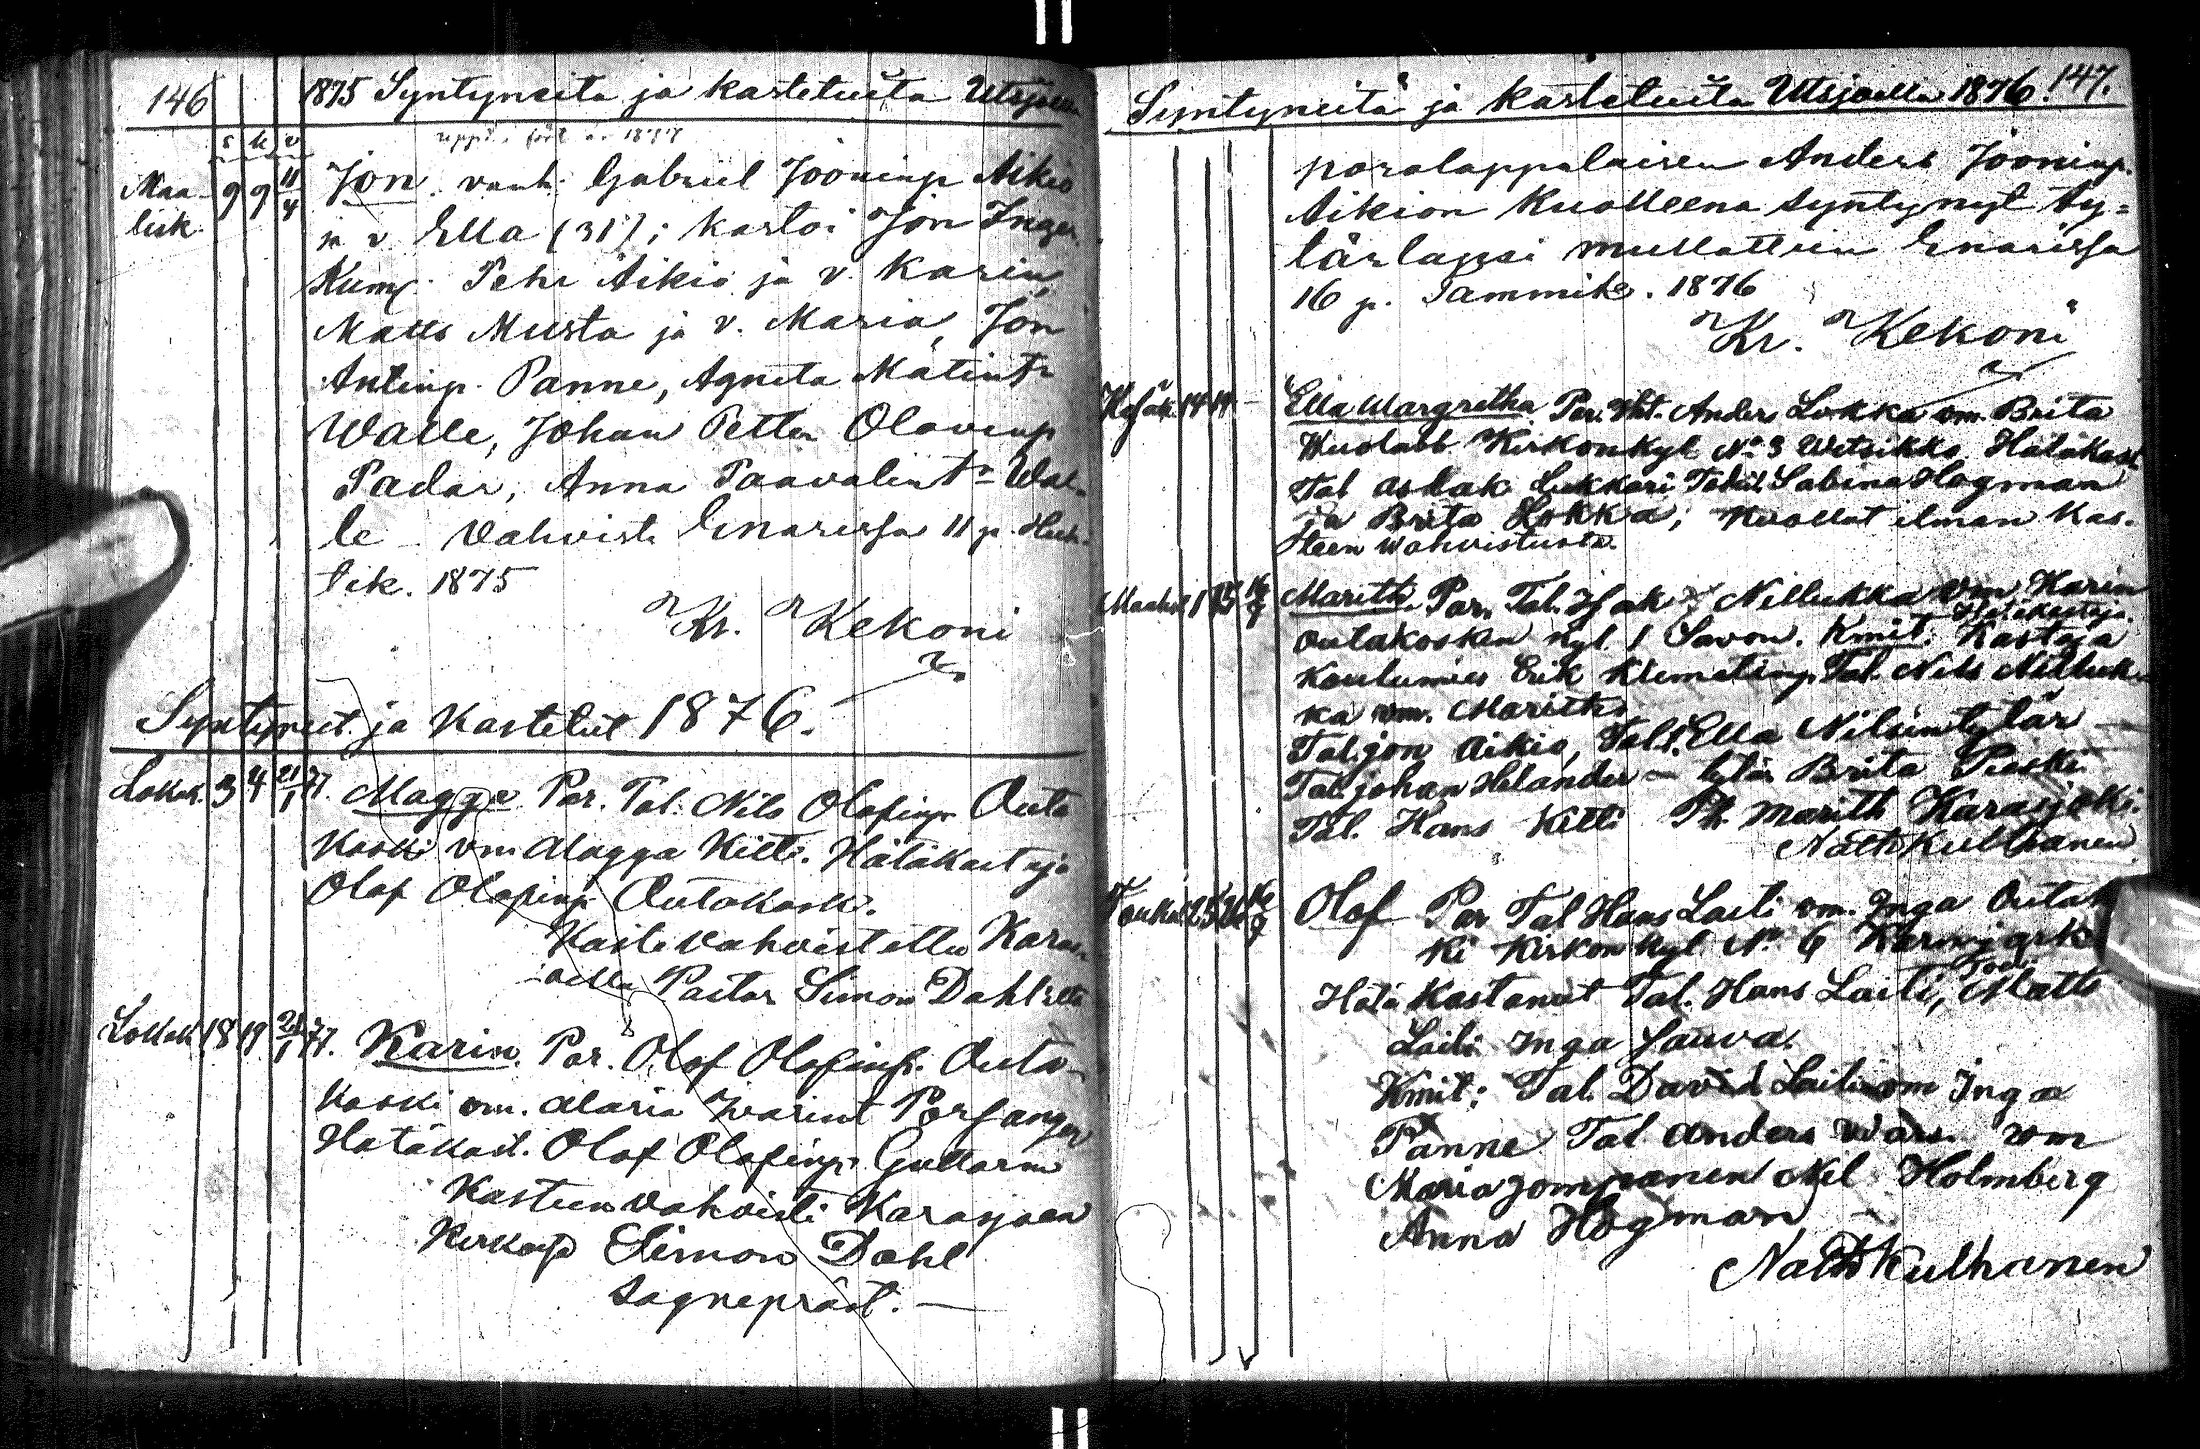 146
1875 Syntyneitä ja kastetuita Utsjoella
s k v
uppg. född år 1877
Maa- 9 9 11/4 Jon vanh. Gabriel Jooninp Aikio
lisk. ja v. Ella (31); kastoi Jon Inger
Kum. Pehr Aikio ja v. Karin,
Matts Musta ja v. Maria, Jon
Antinp. Panne, Agneta Matintr
Walle, Johan Petter Olavinp
Padar, Anna Paavalintr Wal-
le _ Vahvist. Enarissa 11 p. Huh-
tik. 1875
Kr. Kekoni
Syntyneet ja Kastetut 1876.
Lokak. 3 4 21/1 77. Magga Par. Tal. Nils Olofinp. Outa
koski vm. Magga Kitti. Hätäkastaja
Olof Olofinp. Outakoski.
Kaste vahvistettu Karas-
joella Pastor Simon Dahlilta
Lokak. 18 19 21/1 77. Karin. Par. Olof Olofinp. Outa-
koski vm. Maria Iwarint Porsanger
Hätäkast. Olof Olofinp. Guttorm
Kasteen vahvisti Karasjoen
Kirkossa Simon Dahl
Sogneprest. —
Syntyneitä ja kastetuita Utsjoella 1876. 147.
porolappalaisen Anders Jooninp.
Aikion kuolleena syntynyt ty=
tärlapsi mullattiin Enarissa
16 p. Tammik. 1876
Kr. Kekoni
14 14 — Ella Margretha Par. Tal. Anders Lokka vm. Brita
Wuolabb Kirkonkyl No 3 Wetsikko Hätäkast
Tal Aslak Lukkari Todist. Sabina Hogman
ja Brita Lokka; kuollut ilman kas-
teen wahvistusta.
Maalisk 1 Marith. Par. Tal. Isak Nillukka vm Karin
Hätäkastaja
Outakosken kyl. 1 Savon. Kmit. Kastaja
Koulumies Erik Klemetinp. Tal. Nils Nilluk-
ka vm. Marith,
Tal. Jon Aikio, Tal. Ella Nilsintytär —
Tal. Johan Helander — tytär Brita Pieski
Tal. Hans Kitti Marith Karasjoki.
Nath Kulhanen
Touko 25 26 Olof Par Tal Hans Laiti vm. Inga Outak
ki Kirkonkyl. No 6
Tod.
Hätä Kastanut Tal. Hans Laiti, Matts
Laiti Inga Sauva.
Kmit: Tal. David Laiti vm Inga
Panne Tal. Anders Wars vm
Maria Jomppanen Nil Holmberg
Anna Hogman
Nath Kulhanen